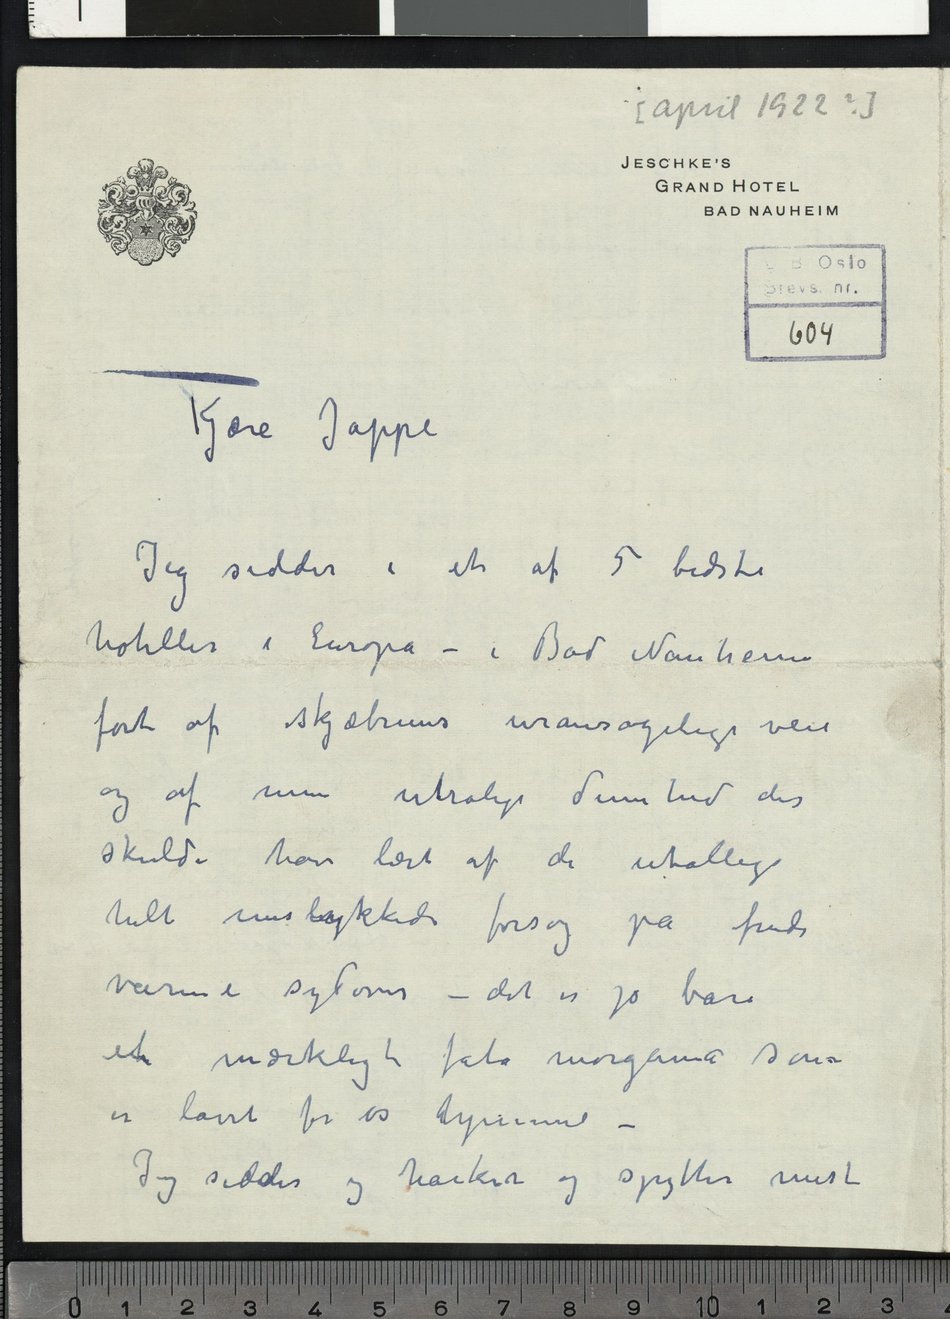 [april 1922?]
JESCHKE'S
GRAND HOTEL
BAD NAUHEIM
Oslo
Brevs. nr.
604
Kjære Jappe
Jeg sidder i et af 5 bedste
hoteller i Europa – i Bad Nauheim
ført af skjæbnens uransagelige veie
og af min utrolige dumhed der
skulde have lært af de utallige
helt mislykkede forsøg på finde
varme sydover – det er jo bare
et mærkeligt fata morgana som
er lavet for os
Jeg sidder og harker og spytter mest